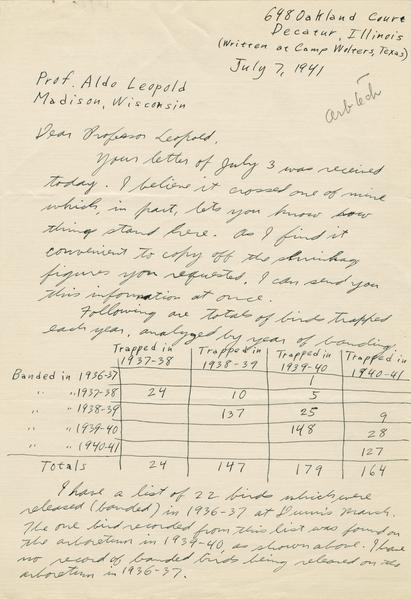 698 Oakland Court
Decatur, Illinois
(Written at Camp Wolters, Texas)
July 7, 1941
Prof. Aldo Leopold
Madison, Wisconsin
Dear Professor Leopold,
Your letter of July 3 was received
today. I believe it crossed one of mine
which, in part, lets you know how
things stand here. As I find it
convenient to copy off the shrinkage
figures you requested, I can send you
this information at once.
Following are totals of birds trapped
each year, analyzed by year of banding.
Trapped in 1937-38 Trapped in 1938-39 Trapped in 1939-40 Trapped in 1940-41
Banded in 1936-37 1
" " 1937-38 24 10 5
" " 1938-39 137 25 9
" " 1939-40 148 28
" " 1940-41 127
Totals 24 147 179 164
I have a list of 22 birds which were
released (banded) in 1936-37 at Marsh.
The one bird recorded from this list was found on
the arboretum in 1939-40, as shown above. I have
no record of banded birds being released on the
arboretum in 1936-37.